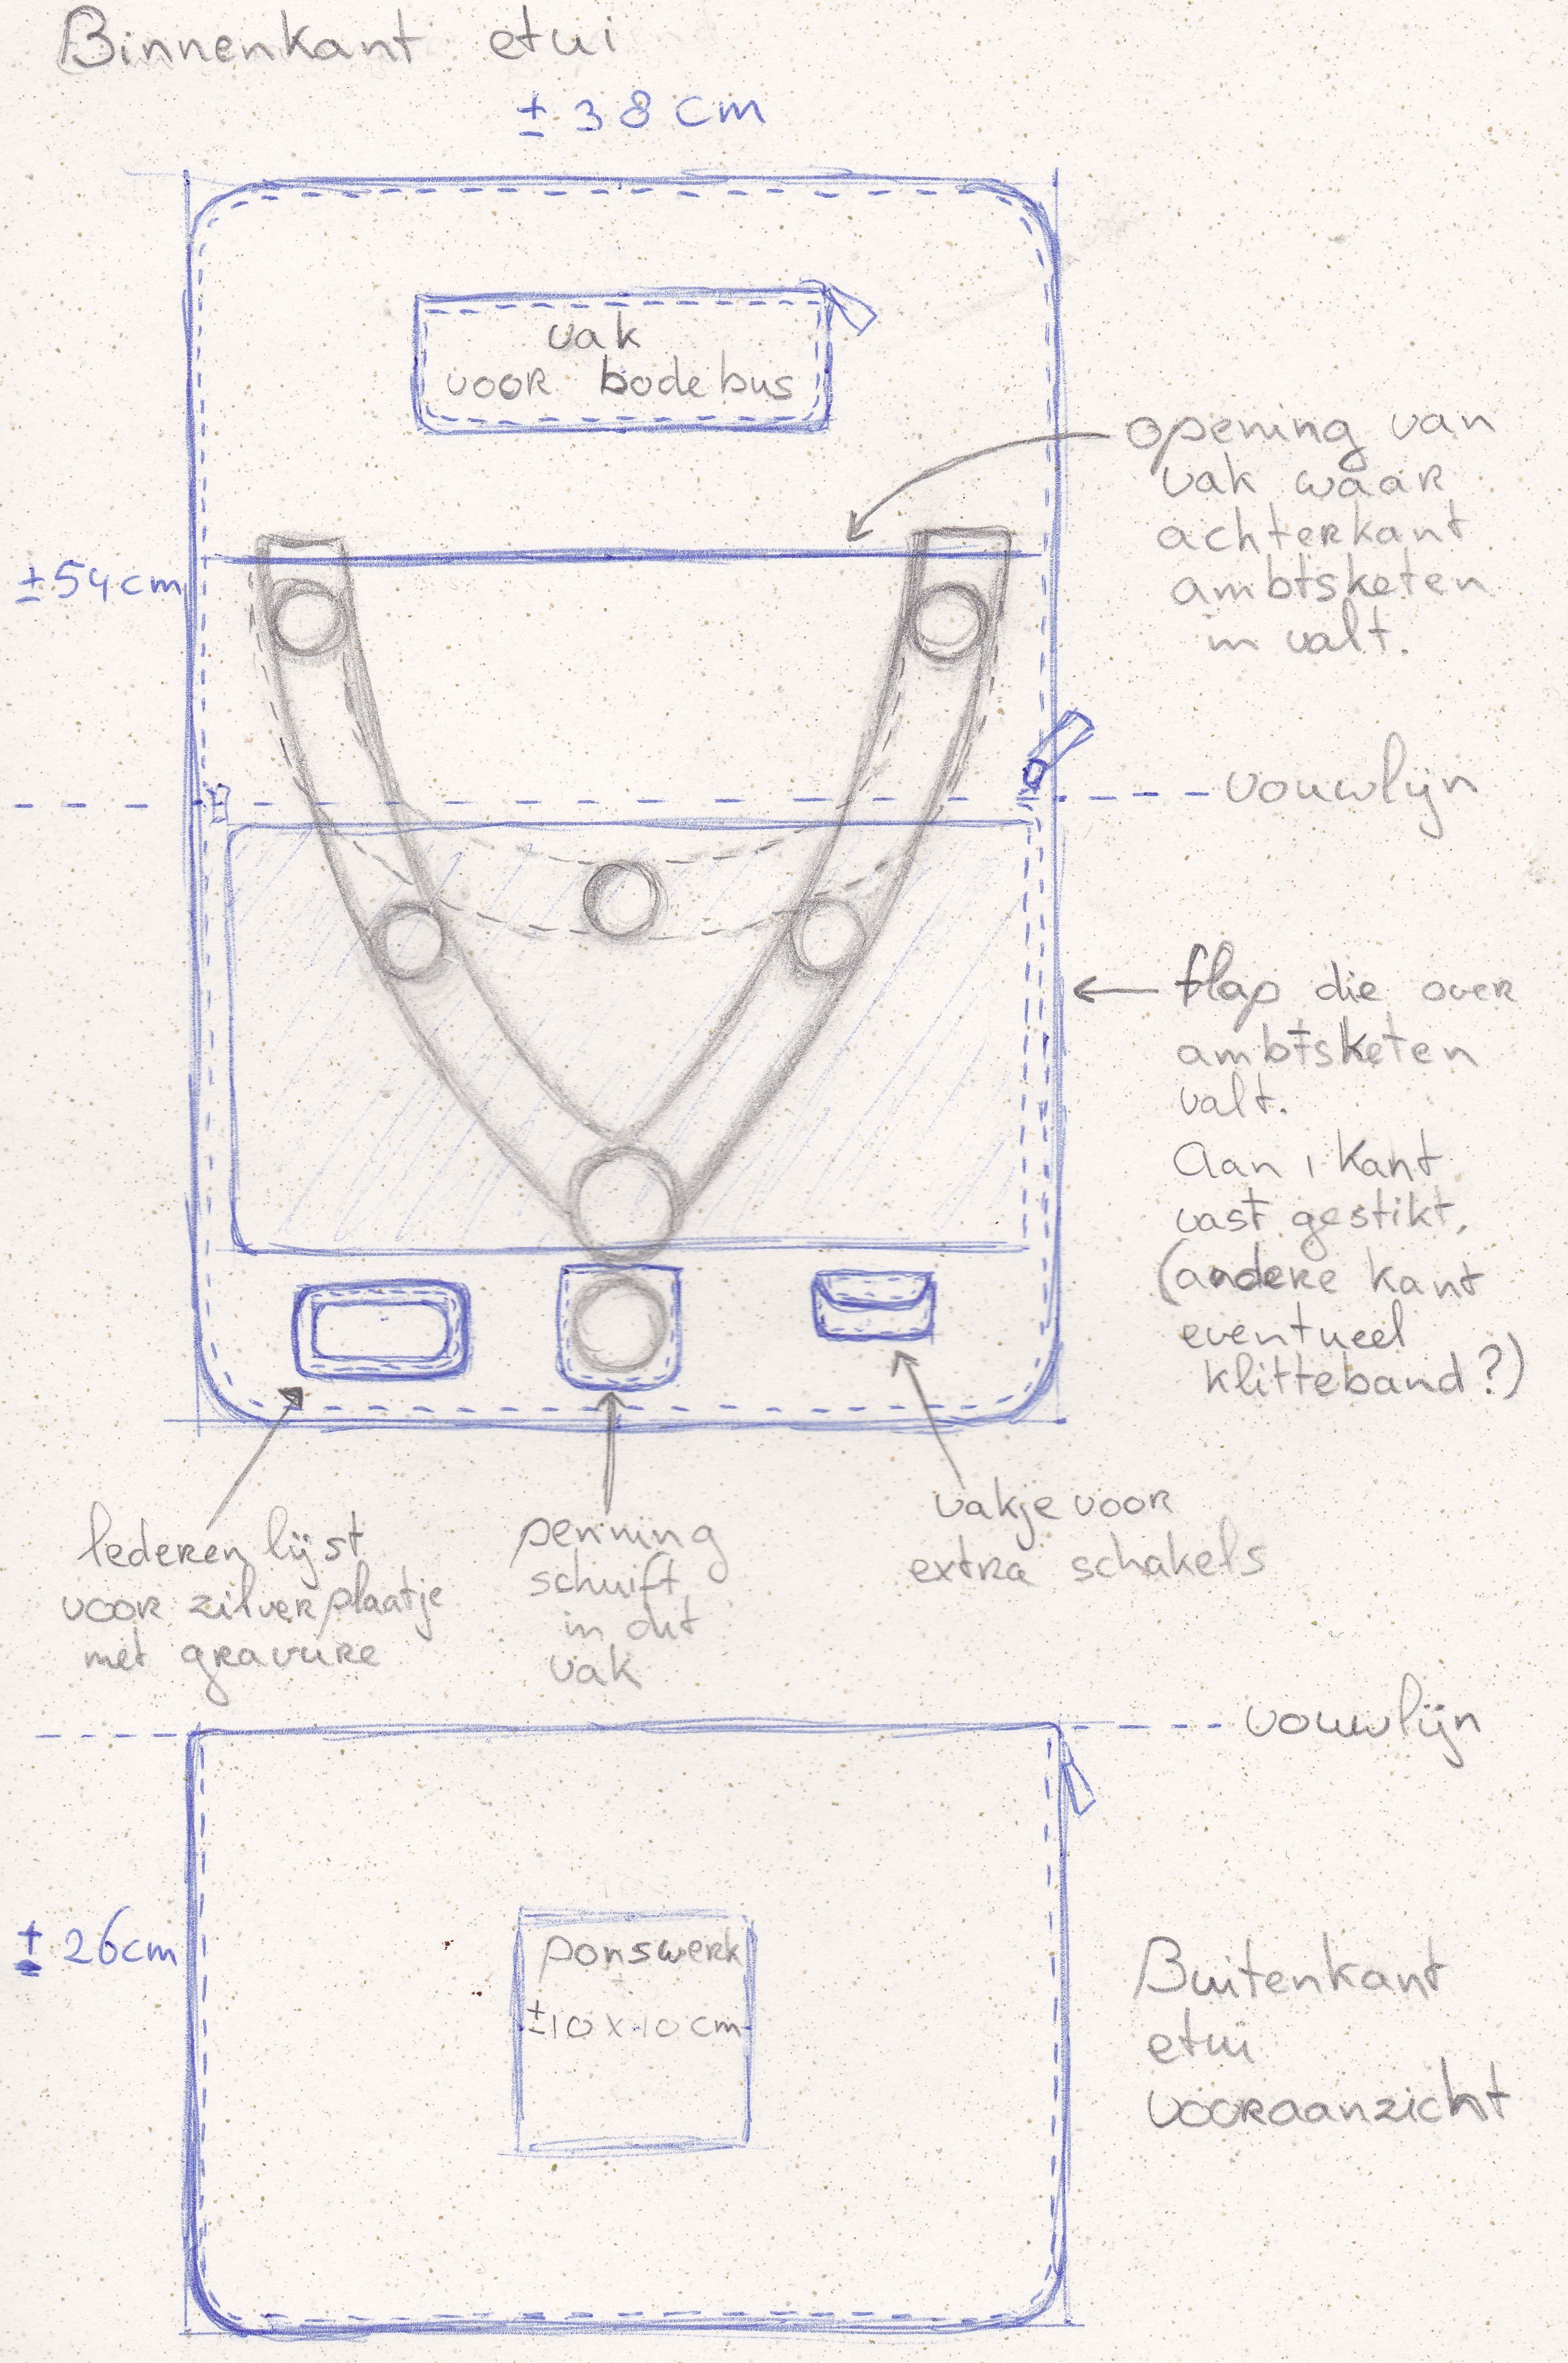 Binnenkant etui
± 38 cm
vak
voor bodebus
opening van
vak waar
achterkant
ambtsketen
in valt.
±54cm
vouwlijn
flap die over
ambtsketen
valt.
Aan 1 kant
vast gestikt,
(andere kant
eventueel
klitteband?)
lederen lijst
voor zilverplaatje
met gravure
penning
schuift
in dit
vak
vakje voor
extra schakels
vouwlijn
± 26cm
ponswerk
±10x10cm
Buitenkant
etui
vooraanzicht